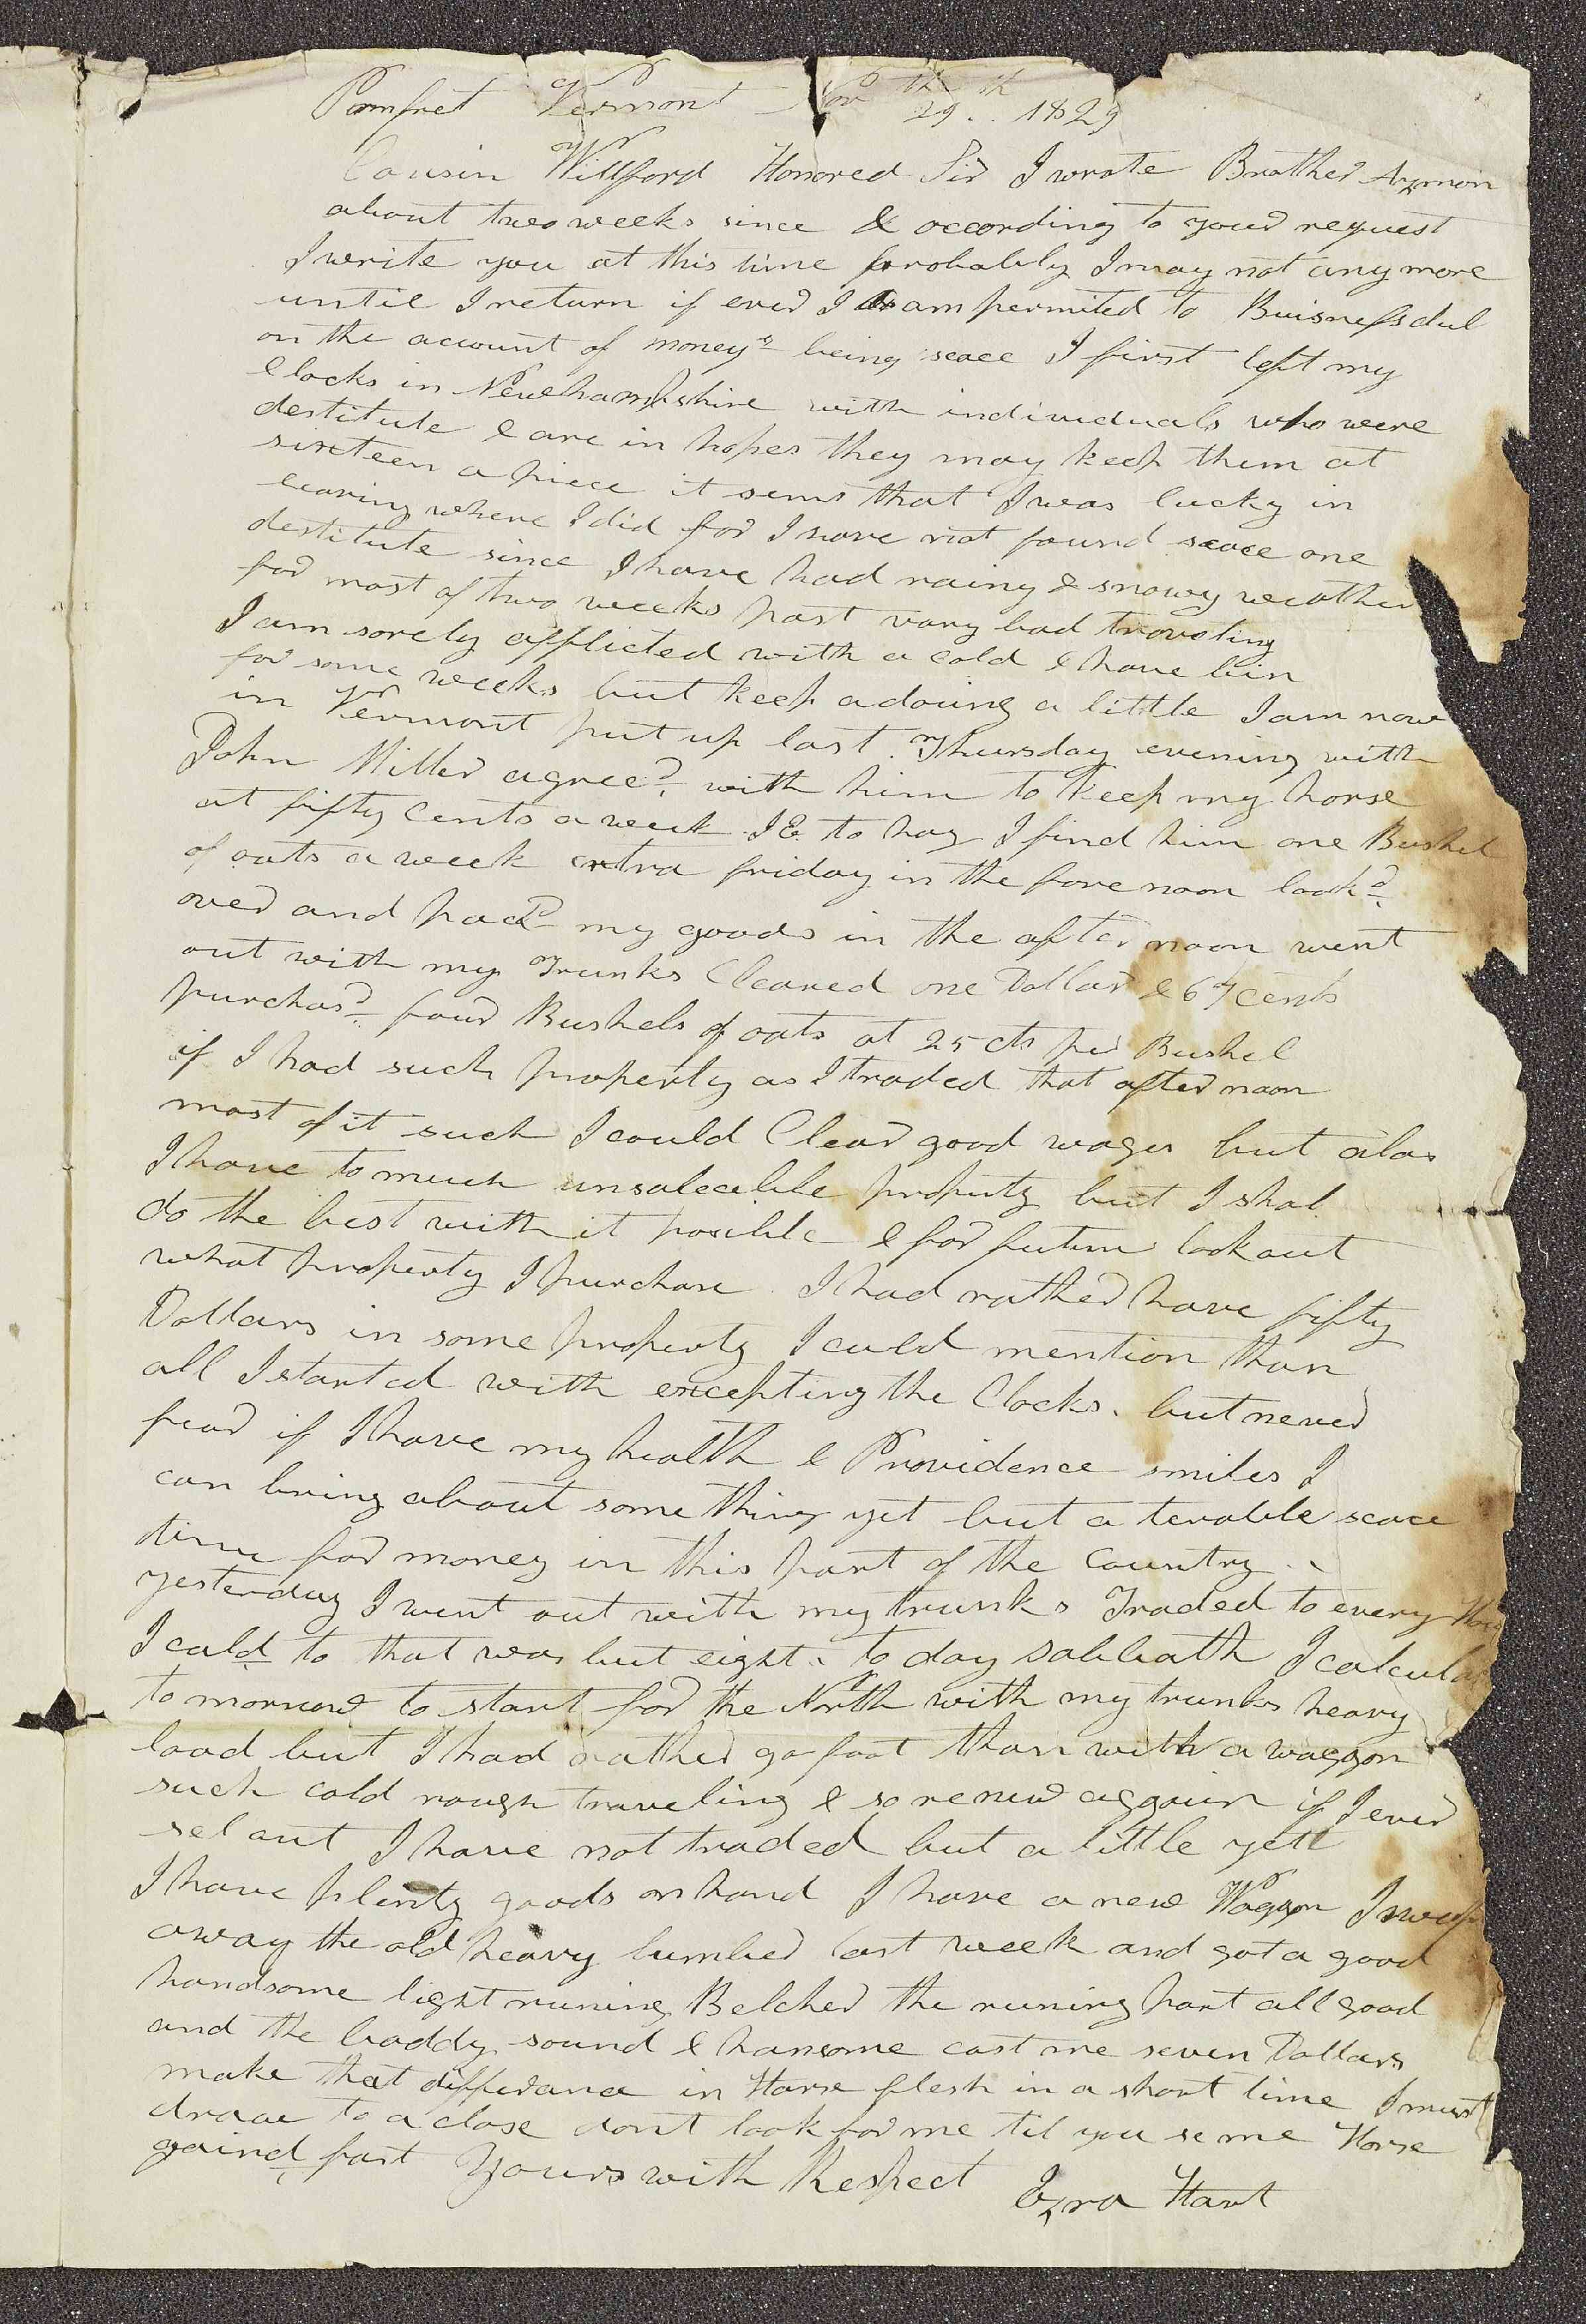 Pomfret Vermont Nov the 29th 1829
Cousin Willford Honored Sir I wrote Brother Azmon
about two weeks since & according to your request
I write you at this time probably I may not any more
until I return if ever I am permited to Buisness dul
on the account of moneys being scace I first left my
Clocks in Newhampshire with individuals who were
destitute & are in hopes they may keep them at
sixteen a piece it sems that I was lucky in
leaving where I did for I have not found scace one
destitute since I have had rainy & snowy weather
for most of two weeks past vary bad traveling
I am sorely afflicted with a cold & have bin
for some weeks but keep a doing a little I am now
in Vermont put up last Thursday evening with
John Miller agreed with him to keep my horse
at fifty Cents a week IE to hay I find him one Bushel
of oats a week extra friday in the fore noon lookd
over and pacd my goods in the after noon went
out with my Trunks Cleared one Dollar & 67 cents
purchasd four Bushels of oats at 25 cts per Bushel
if I had such property as I traded that after noon
most of it such I could Clear good wages but alas
I have to much unsaleable property but I shal
do the best with it posible & for future look out
what property I purchase I had rather have fifty
Dollars in some property I could mention than
all I started with excepting the Clocks. but never
fear if I have my health & Providence smiles I
can bring about some thing yet but a terable scace
time for money in this part of the Country
yesterday I went out with my trunks Traded to every
I cald to that was but eight. to day sabbath I
to morrow to start for the North with my trunks heavy
load but I had rather go foot than with a waggon
such cold rough traveling & so renew aggain if I ever
sel out I have not traded but a little yett
I have plenty goods on hand I have a new Waggon I
away the old heavy lumber last week and got a good
handsome light runing Belcher the runing part all good
and the boddy sound & hansome cost me seven Dollars
make that differance in Horse flesh in a short time I must
draw to a close dont look for me til you se me Horse
gaind fast Yours with Respect Ezra Hart